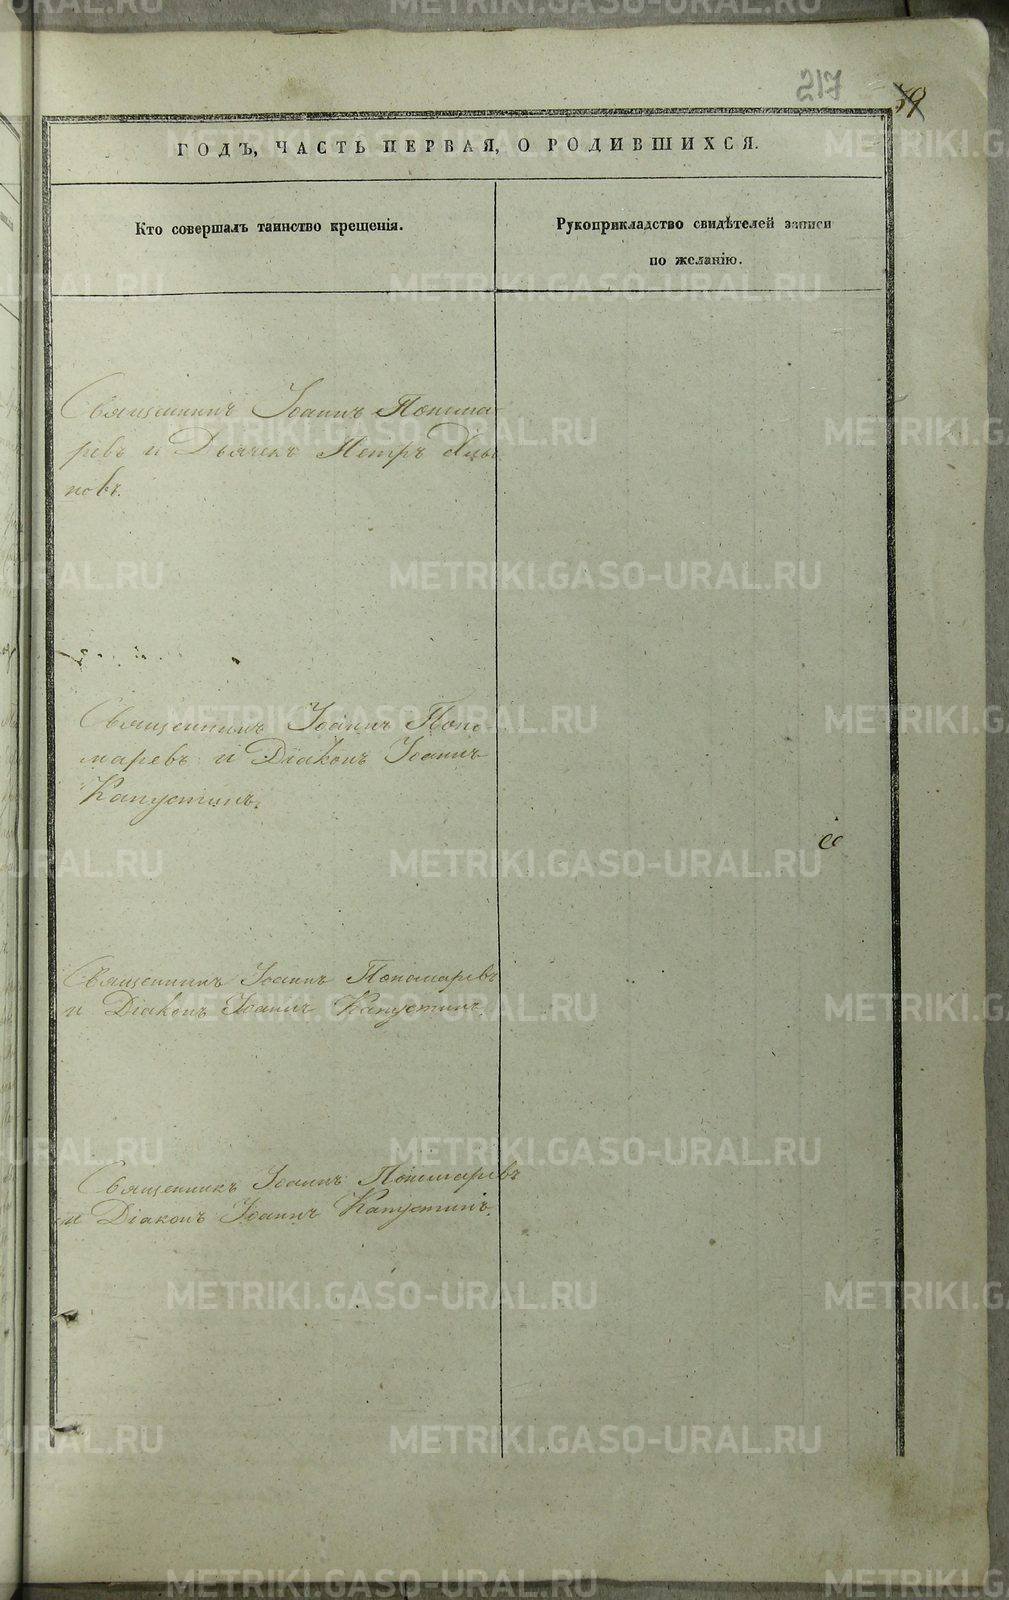 217
ГОДЪ, ЧАСТЬ ПЕРВАЯ, О РОДИВШИХСЯ.
Кто совершалъ таинство крещенія.
Рукоприкладство свидѣтелей записи
по желанію.
Священникъ Іоаннъ Понома-
ревъ и Дьячекъ Петръ
новъ.
Священникъ Іоаннъ Поно-
маревъ и Діаконъ Іоаннъ
Капустинъ.
Священникъ Іоаннъ Пономаревъ
и Діаконъ Іоаннъ Капустинъ.
Священникъ Іоаннъ Пономаревъ
и Діаконъ Іоаннъ Капустинъ.
METRIKI.GASO-URAL.RU